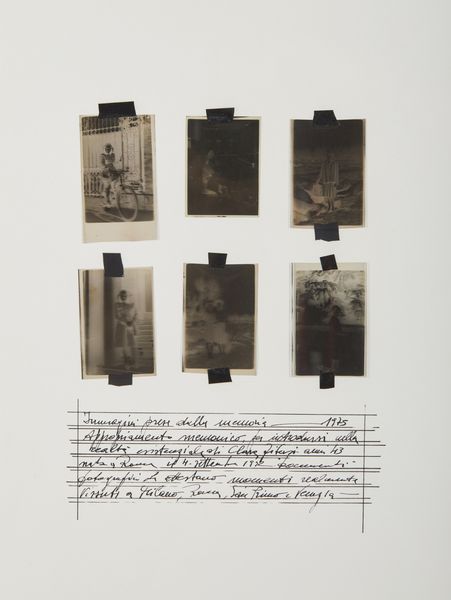 Immagini prese dalla memoria — 1975
Appropriamento memonico per introdursi nella
realtà esistenziale di Clara anni 43
nata a Roma il 4 settembre 1932 documenti
fotografici che attestano momenti realmente
vissuti a Milano, Roma, San Remo e Venezia —